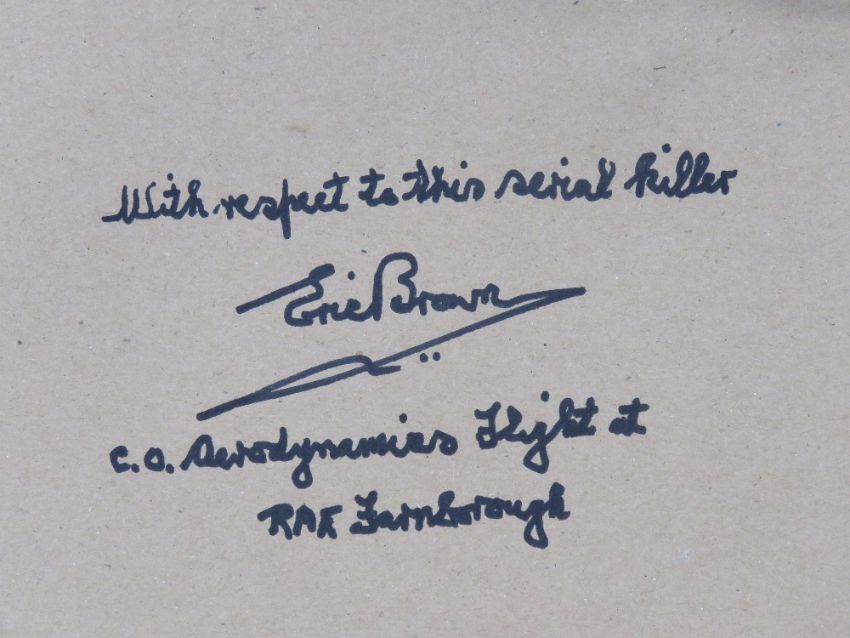 With respect to this serial killer
Eric Brown
C.O. Aerodynamics Flight at
RAE Farnborough